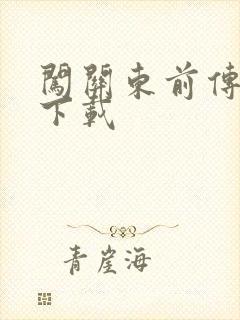 闖關東前傳
下載
青崖海